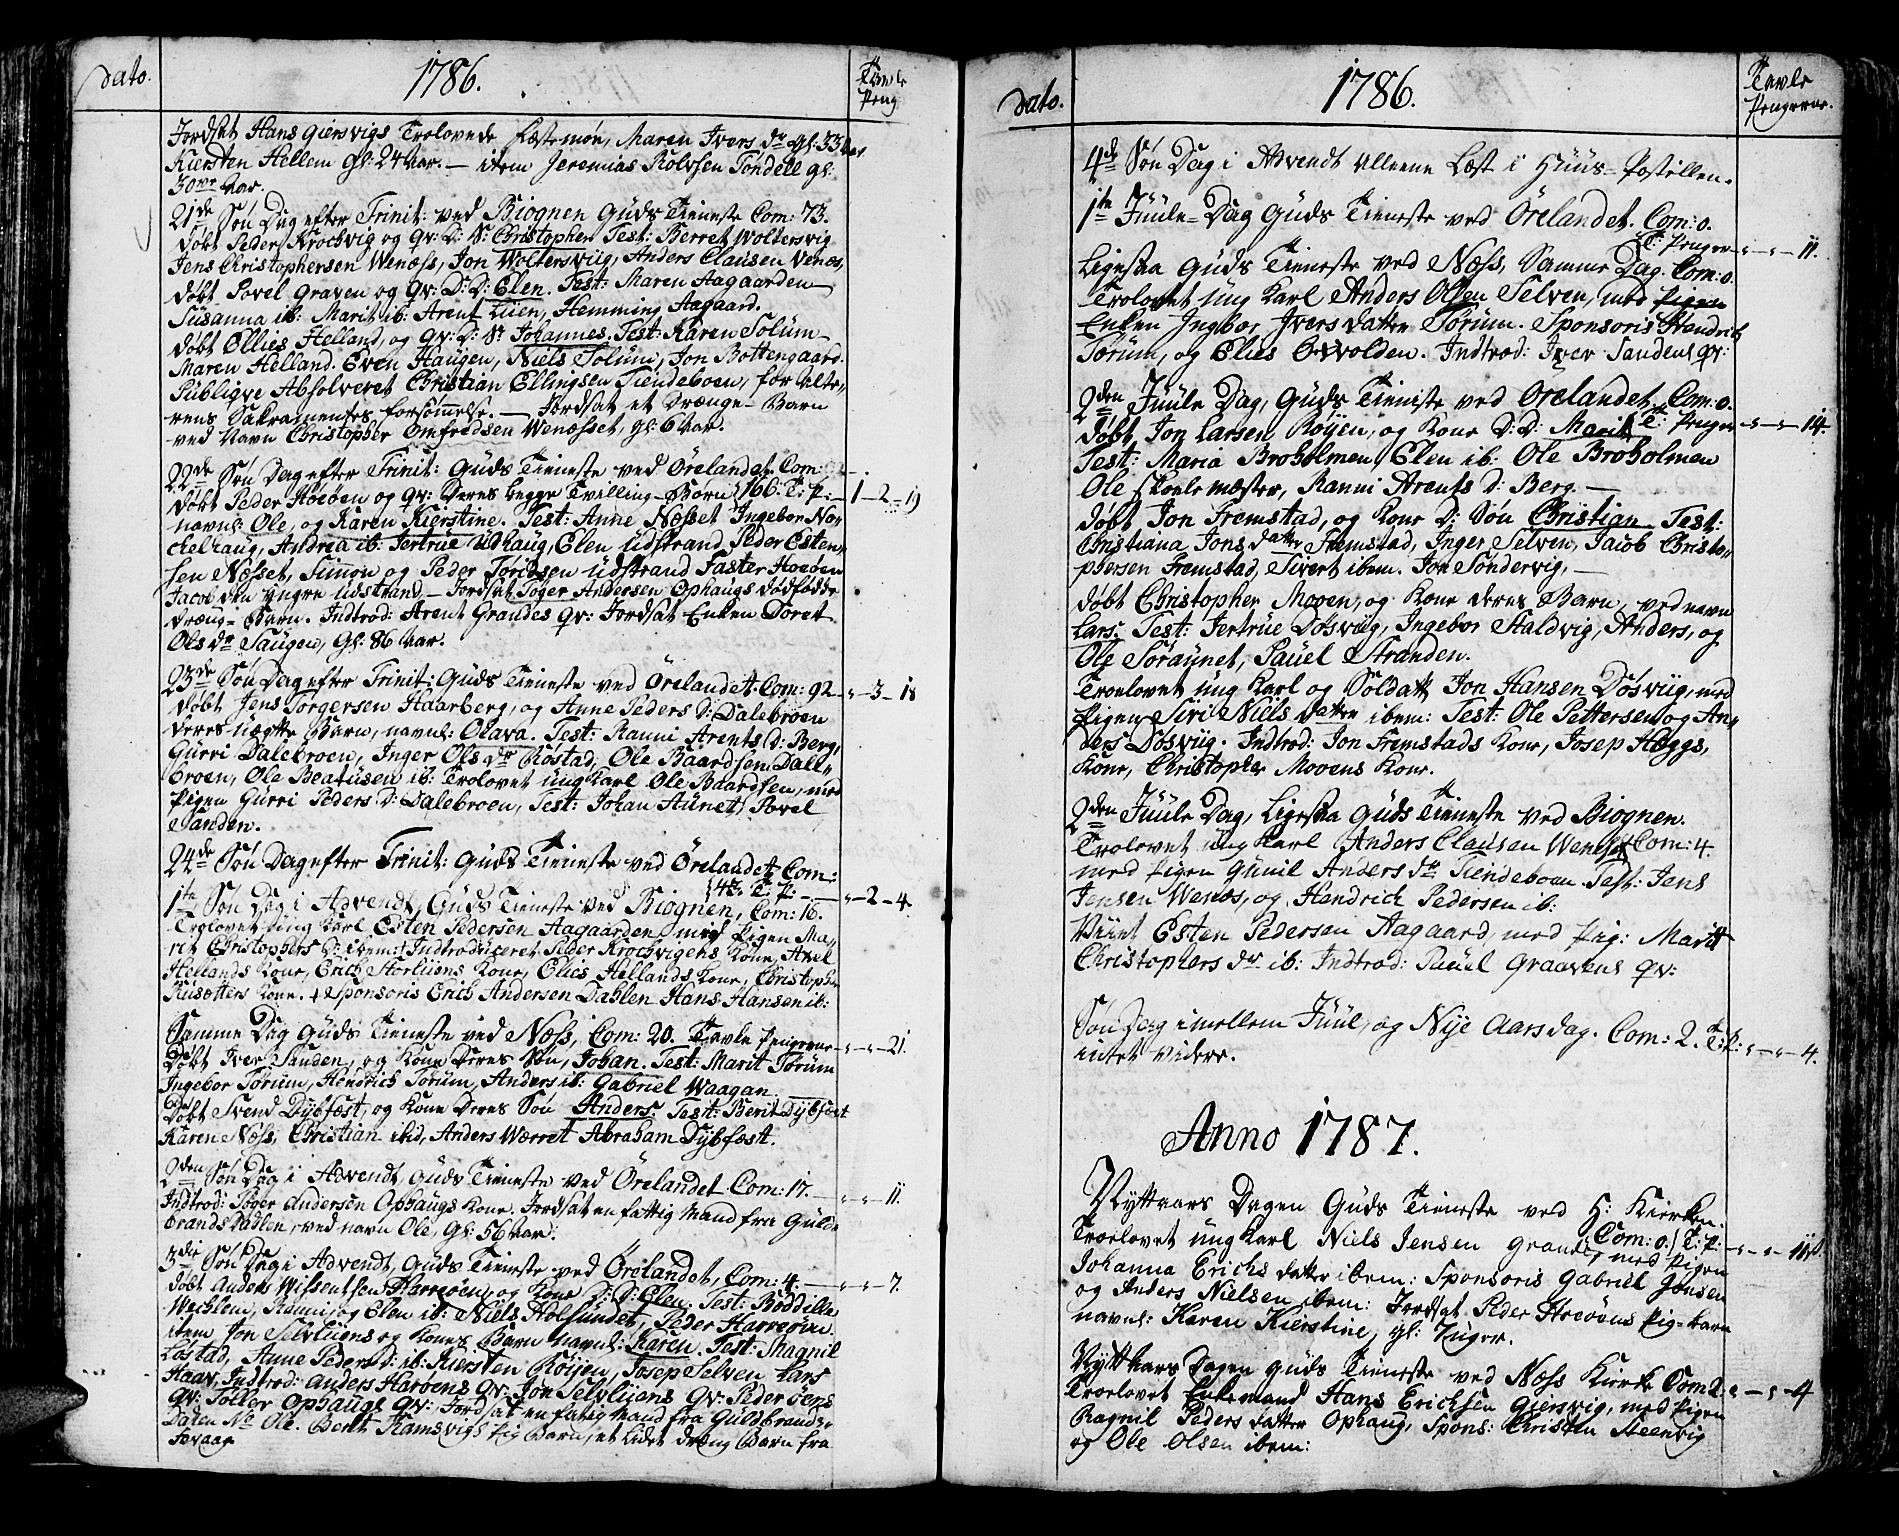 Dato.
1786.
Tavle
Peng
Jordsat Hans Giersvigs Trolovede Fæstemøe, Maren Ivers dr gl: 33 Aar
Kiersten Hellem gl: 24 Aar. — item Jeremias Rolvsen Tondell gl:
30ve Aar.
21de Søn Dag efter Trinit: ved Biognen Guds Tieneste Com: 73.
Døbt Peder Krochvig og Qv: D: S: Christopher Test: Berret Woltersvig
Jens Christophersen Wenæss, Jon Woltersviig, Anders Clausen Venæs,
Døbt Povel Graven og Qv: D: D: Elen. Test: Maren Aagaarden
Susanna ib: Marit ib: Arent Luen, Hemming Aagaard.
Døbt Ollies Helland, og Qv: D: S: Johannes. Test: Karen Solum
Maren Helland. Even Haugen, Niels Solum, Jon Bottengaard.
Publiqve Absolveret Christian Ellingsen Tiendeboen, for Alte-
rens Sakramentes forsømmelse. — Jordsat et Drænge-Barn
ved Navn Christopher Omfredsen Wenæsset, gl: 6 Aar.
22de Søn Dag efter Trinit: Guds Tieneste ved Ørelandet Com:
Døbt Peder Hoeøen og Qv: Deres begge Tvilling-Børn 166. T: P: — 1 - 2 - 19
navnl: Ole, og Karen Kierstine. Test: Anne Næsset Ingebor No-
chelhaug, Andrea ib: Jertrue Udhaug, Elen Udstrand Peder Esten-
sen Næsset, Simon og Peder Joridsen Udstrand Faster Hoeøen
Jacob den yngre Udstrand. — Jordsat Toger Andersen Ophaugs dødfødde
Dræng-Barn. Indtrod: Arent Grandes Qv: Jordsat Enken Doret
Ols dr Saugen, Gl: 86 Aar.
23de Søn Dag efter Trinit: Guds Tieneste ved Ørelandet Com: 92 - „ - 3 - 18
Døbt Jens Torgersen Haarberg, og Anne Peders D: Dalebroen
Deres uægte Barn, navnl: Olava. Test: Ranni Arents D: Berg,
Gurri Dalebroen, Inger Ols dr Røstad, Ole Baardsen Dale-
broen, Ole Beatusen ib: Trolovet ung Karl Ole Baardsen, med
Pigen Gurri Peders D: Dalebroen, Test: Johan Aunet, Povel
Sanden.
24de Søn Dag efter Trinit: Guds Tieneste ved Ørelandet Com:
T: P: — „ - 2 - 4.
1te Søn Dag i Advendt, Guds Tieneste ved Biognen, Com: 16.
Trolovet ung Karl Esten Pedersen Aagaarden, med Pigen Ma-
rit Christophers D: ibem: Introduceret Peder Krochvigens Kone, Axel
Hellands Kone, Erich Storluens Kone, Elies Hellands Kone, Christopher
Rusetters Kone. Sponsoris Erich Andersen Dahlen Hans Hansen ib:
Samme Dag Guds Tieneste ved Næss, Com: 20. Tavle Pengerne - „ - „ - 21.
Døbt Iver Sanden, og Kone Deres Søn, Johan. Test: Marit Tørum
Ingebor Tørum, Hendrich Tørum, Anders ib: Gabriel Waagan
Døbt Svend Dybfest, og Kone Deres Søn Anders. Test: Berit Dybfest
Karen Næss, Christian ibid, Anders Werret Abraham Dybfæst.
2den Søn Dag i Advendt, Guds Tieneste ved Ørelandet Com: 17. — „ - „ - 11.
Indtrod: Toger Andersen Ophaugs Kone. Jordsat en fattig Mand fra Guld-
brandsdahlen, ved navn Ole, Gl: 56 Aar.
3die Søn Dag i Advendt, Guds Tieneste ved Ørelandet, Com: 4. — „ - „ - 7.
Døbt Anders Harreøen, og Kone D: D: Elen. Test: Boddille
Weiklem, Ranni, og Elen ib: Niels Holsundet, Peder Harreøen.
item Jon Selvluens og Kones Barn navnl: Karen. Test: Magnil
Lostad, Anne Peders D: ib: Kiersten Røijen, Josep Selven, Lars
Haav, Indtrod: Anders Harøens Qv: Jon Selvluens Qv: Peder
Qv: Toller Ophaugs Qv: Jordsat en fattig Mand fra Guldbrands-
Dalen Ne Ole. Bent Ramsvigs Pig Barn, et lidet Dreng Barn fra

Dato.
1786.
Tavle
Pengerne.
4de Søn Dag i Advendt Alleene Læst i Huus-Postillen.
1te Juule-Dag Guds Tieneste ved Ørelandet. Com: 0.
T: Penger - „ - „ - 11.
Ligesaa Guds Tieneste ved Næss, Samme Dag. Com: 0
Trolovet ung Karl Anders Olsen Selven, med Pigen
Enken Ingbor Ivers datter Tørum. Sponsoris Hendrik
Tørum, og Elies Ørvolden. Indtrod: Iver Sandens qv:
2den Juule Dag, Guds Tieneste ved Ørelandet, Com: 0.
Døbt, Jon Larsen Røijen, og Kone D: D: Marit T: Penger - „ - „ - 14.
Test: Maria Broholmen, Elen ib: Ole Broholmen
Ole Skolemæster, Ranni Arents D: Berg. —
Døbt Jon Fremstad, og Kone D: Søn Christian Test:
Christiana Jons datter Fremstad, Inger Selven, Jacob Christo-
phersen Fremstad, Sivert ibem. Jon Søndervig, —
Døbt Christopher Moven, og Kone Deres Barn, ved navn
Lars. Test: Jertrue Døsviig, Ingebor Staldvig, Anders, og
Ole Søraunet, Pauel Stranden.
Troelovet ung Karl og Soldat Jon Hansen Døsviig, med
Pigen Siri Niels datter ibem: Test: Ole Pettersen og An-
ders Døsviig. Indtrod: Jon Fremstads Kone, Josep Hæggs,
Kone, Christopher Movens Kone.
2den Juule Dag, Ligesaa Guds Tieneste ved Biognen.
Trolovet ung Karl Anders Clausen Wenæs Com: 4.
med Pigen Gunil Anders dr Tiendeboen Test: Jens
Jensen Wenæs, og Hendrich Pedersen ib:
Viiet Esten Pedersen Aagaard med Pig: Marit
Christophers dr ib: Indtrod: Pauel Graavens qv:
Søn Dag imellem Juul, og Nye Aarsdag. Com: 2. T: P: „ - „ - 4.
intet videre.
Anno 1787.
Nyttaars Dagen Guds Tieneste ved H: Kierken.
Com: 0. T: P: - „ - „ - 11
Troelovet ung Karl Niels Jensen Grande, med Pigen
Johanna Erichs datter ibem: Sponsoris Gabriel Jonsen
og Anders Nielsen ibem: Jordsat Peder Hoeøens Pig-barn
navnl: Karen Kierstine, gl: 7 uger.
Nyttaars Dagen Guds Tieneste ved Næss Kierke Com 2 „ - „ - 4
Troelovet Enkemand Hans Erichsen Giersvig, med Pigen
Ragnil Peders datter Ophaug, Spons: Christen Steenvig
og Ole Olsen ibem: